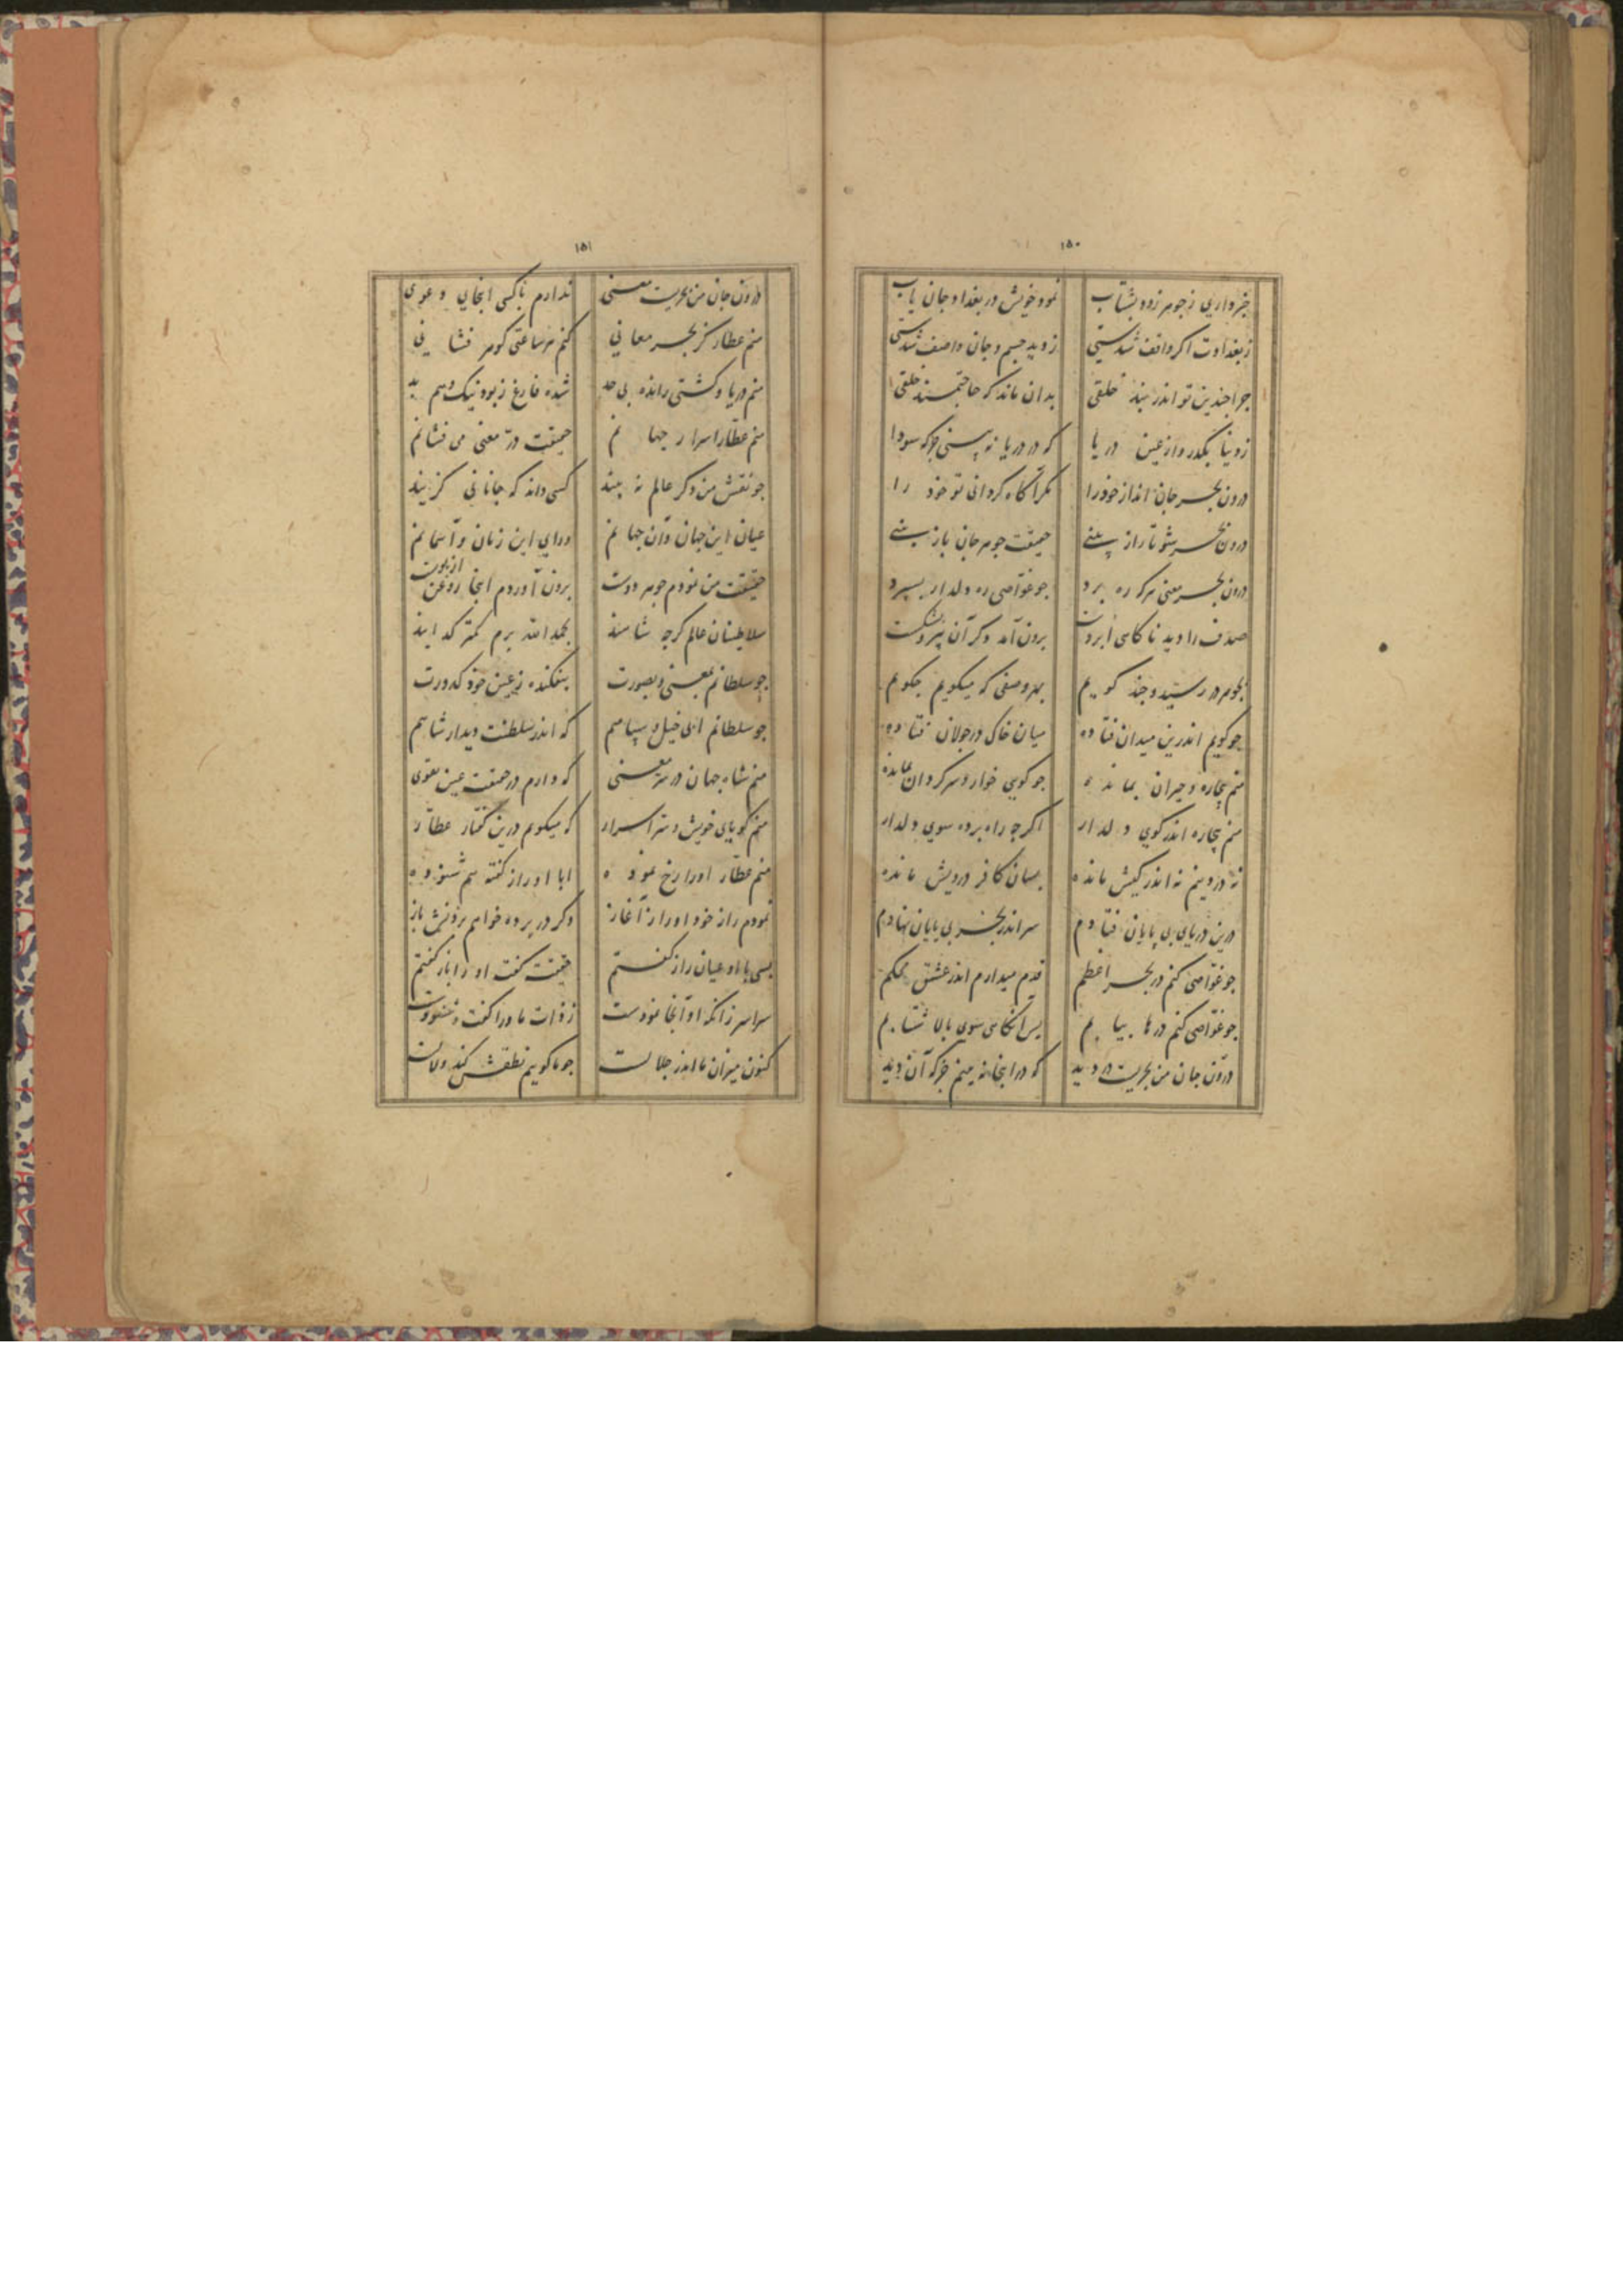 ۱۵۰
خبر داری ز جوهر زود بشتاب نمود خویش در بغداد جان یاب
ز بغدادت اکر واقف شدستی ز دید جسم و جان واصف شدستی
جرا جندین تو اندر بند خلقی بدان ماند که حاجتمند خلقی
ز دنیا بگذر و از عین دریا که در دریا نه بینی جز که سودا
درون بحر جان انداز خود را مکر آکاه کردانی تو خود را
درون بحر شو تا راز بینی حقیقت جوهر جان باز بینی
درون بحر معنی هر که ره برد جو غواصی ره دلدار بسپرد
صدف را دید ناکاهی برون آمد دکر آن
بجوهر در رسید و جند کویم بهر وصفی که میکویم جکویم
جو کویم اندرین میدان فتاده میان خاک در جولان فتاده
منم بیچاره و حیران بمانده جو کویی خوار و سرکردان بمانده
منم بیچاره اندر کوی دلدار اکرچه راه برده سوی دلدار
نه در دینم نه اندر کیش مانده بسان کافر درویش مانده
درین دریای بی پایان فتادم سر اندر بحر بی پایان نهادم
جو غواصی کنم در بحر اعظم قدم میدارم اندر عشق محکم
جو غواصی کنم درها بیابم پس آنکاهی سوی بالا شتابم
درون جان من بحریست در دید که در اینجا نه بینم جز که آن دید
۱۵۱
درون جان من بحریست معنی ندارم با کسی اینجای دعوی
منم عطار کز بحر معانی کنم هر ساعتی کوهر فشانی
منم دریا و کشتی رانده بی حد شده فارغ ز بود نیک و هم بد
منم عطار اسرار جهانم حقیقت در معنی می فشانم
جو نقش من دکر عالم نه بیند کسی داند که جانانی کزیند
عیان این جهان و آن جهانم ورای این زمان و آسمانم
حقیقت من نمودم جوهر دوست برون آوردم اینجا روغن از پوست
سلاطینان عالم کرچه شاهند بحمدالله برم کمتر کدایند
جو سلطانم بمعنی و بصورت بیفکنده ز عین خود کدورت
جو سلطانم ابی خیل و سپاهم که اندر سلطنت دیدار شاهم
منم شاه جهان در سر معنی که دارم در حقیقت عین تقوی
منم کویای خویش و سر اسرار که میکویم درین کفتار عطار
منم عطار او را رخ نموده ابا او راز کفته هم شنوده
نمودم راز خود او را ز آغاز دکر در پرده خواهم بردنش باز
بسی با او عیان راز کفتم حقیقت کفت او را باز کفتم
سراسر زانکه او آنجا نمودست ز ذات ما ورا کفت و شنودست
کنون میزان ما اندر جلالست جو ما کوییم نطقش کند و لالست